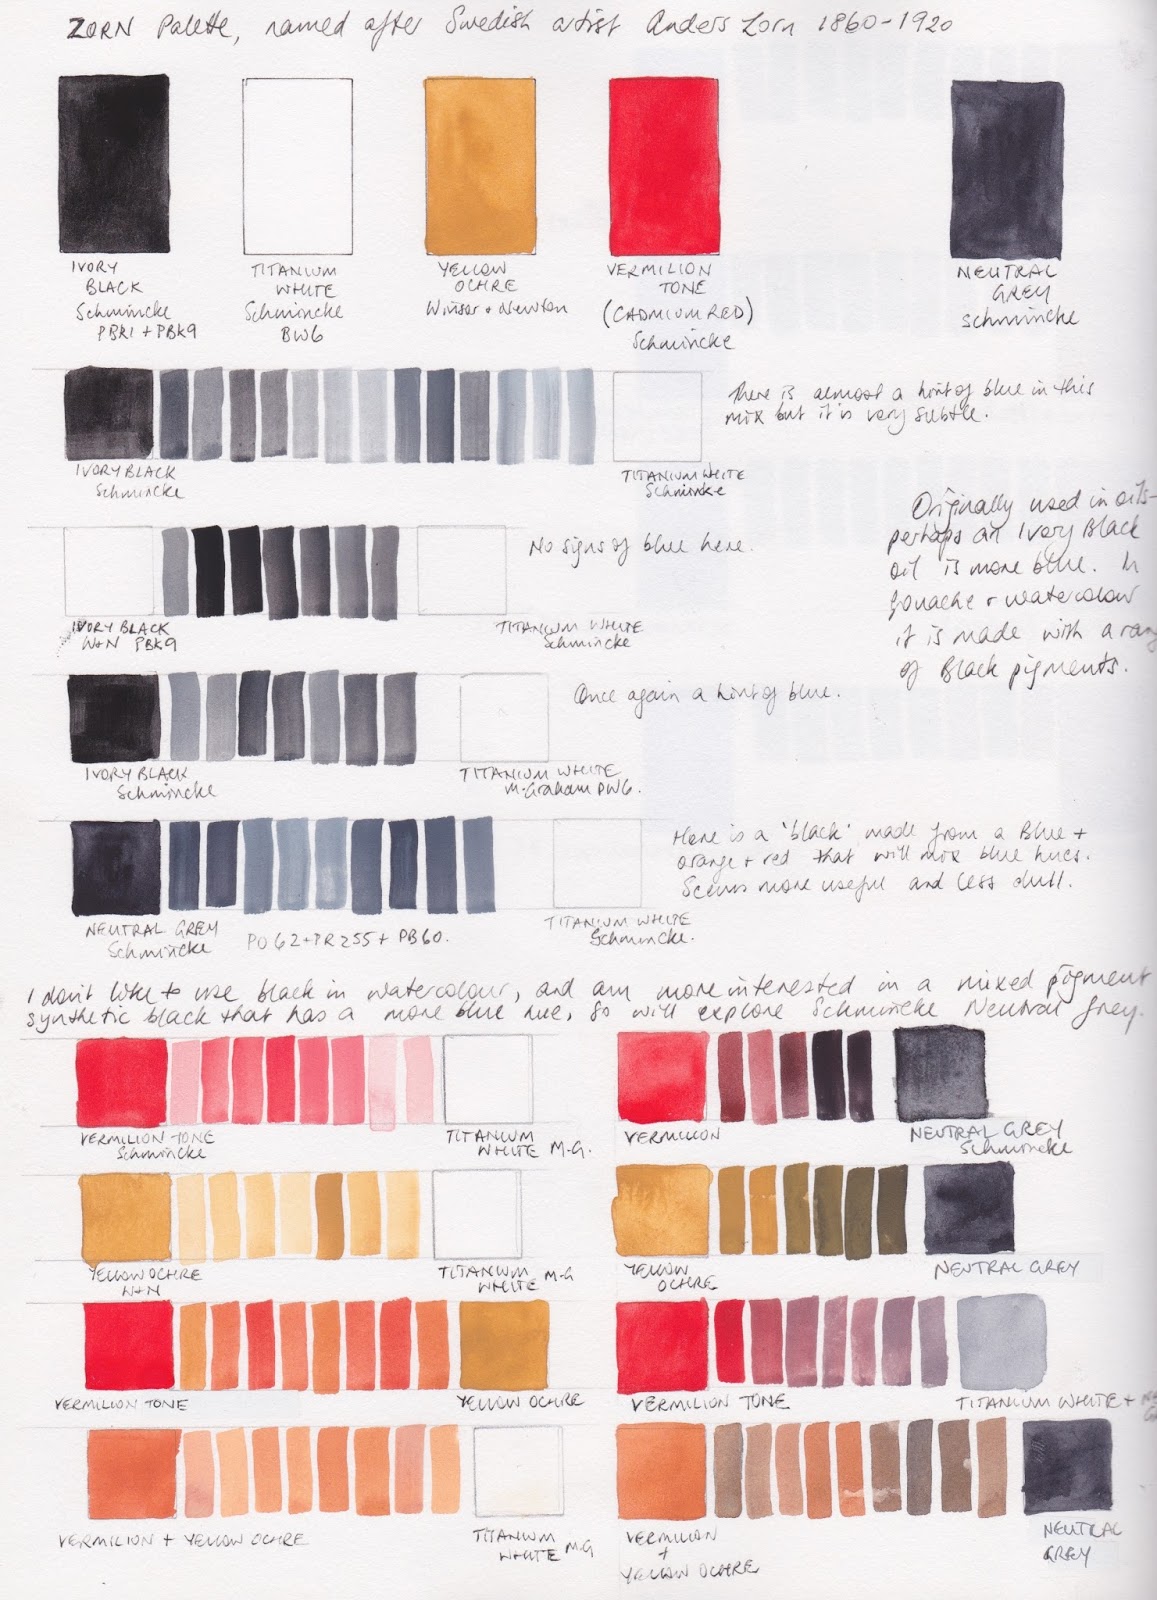 ZORN Palette, named after Swedish artist Anders Zorn 1860-1920
IVORY
BLACK
Schmincke
PBK1 + PBK9
TITANIUM
WHITE
Schmincke
BW6
YELLOW
OCHRE
Winsor + Newton
VERMILION
TONE
(CADMIUM RED)
Schmincke
NEUTRAL
GREY
Schmincke
There is almost a hint of blue in this
mix but it is very subtle.
IVORY BLACK
Schmincke
TITANIUM WHITE
Schmincke
No signs of blue here.
IVORY BLACK
W+N PBK9
TITANIUM WHITE
Schmincke
Originally used in oils-
perhaps an Ivory Black
oil is more blue. In
Gouache + watercolour
it is made with a
of Black pigments.
Once again a hint of blue.
IVORY BLACK
Schmincke
TITANIUM WHITE
M.Graham PW6.
Here is a 'black' made from a Blue +
orange + red that will mix blue hues.
Seems more useful and less dull.
NEUTRAL GREY
Schmincke
PO62+PR255+PB60.
TITANIUM WHITE
Schmincke.
I don't like to use black in watercolour, and am more interested in a mixed pigment
synthetic black that has a more blue hue, so will explore Schmincke Neutral Grey.
VERMILION TONE
Schmincke
TITANIUM
WHITE M.G.
VERMILION
NEUTRAL GREY
Schmincke
YELLOW OCHRE
W+N
TITANIUM
WHITE M.G
YELLOW
OCHRE
NEUTRAL GREY
VERMILION TONE
YELLOW OCHRE
VERMILION TONE
TITANIUM WHITE +
VERMILION + YELLOW OCHRE
TITANIUM
WHITE M.G
VERMILION
+
YELLOW OCHRE
NEUTRAL
GREY